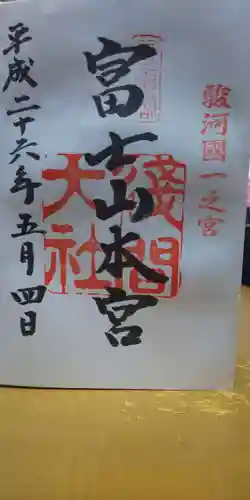 駿河國一之宮
富士山本宮
淺間大社
平成二十六年五月四日